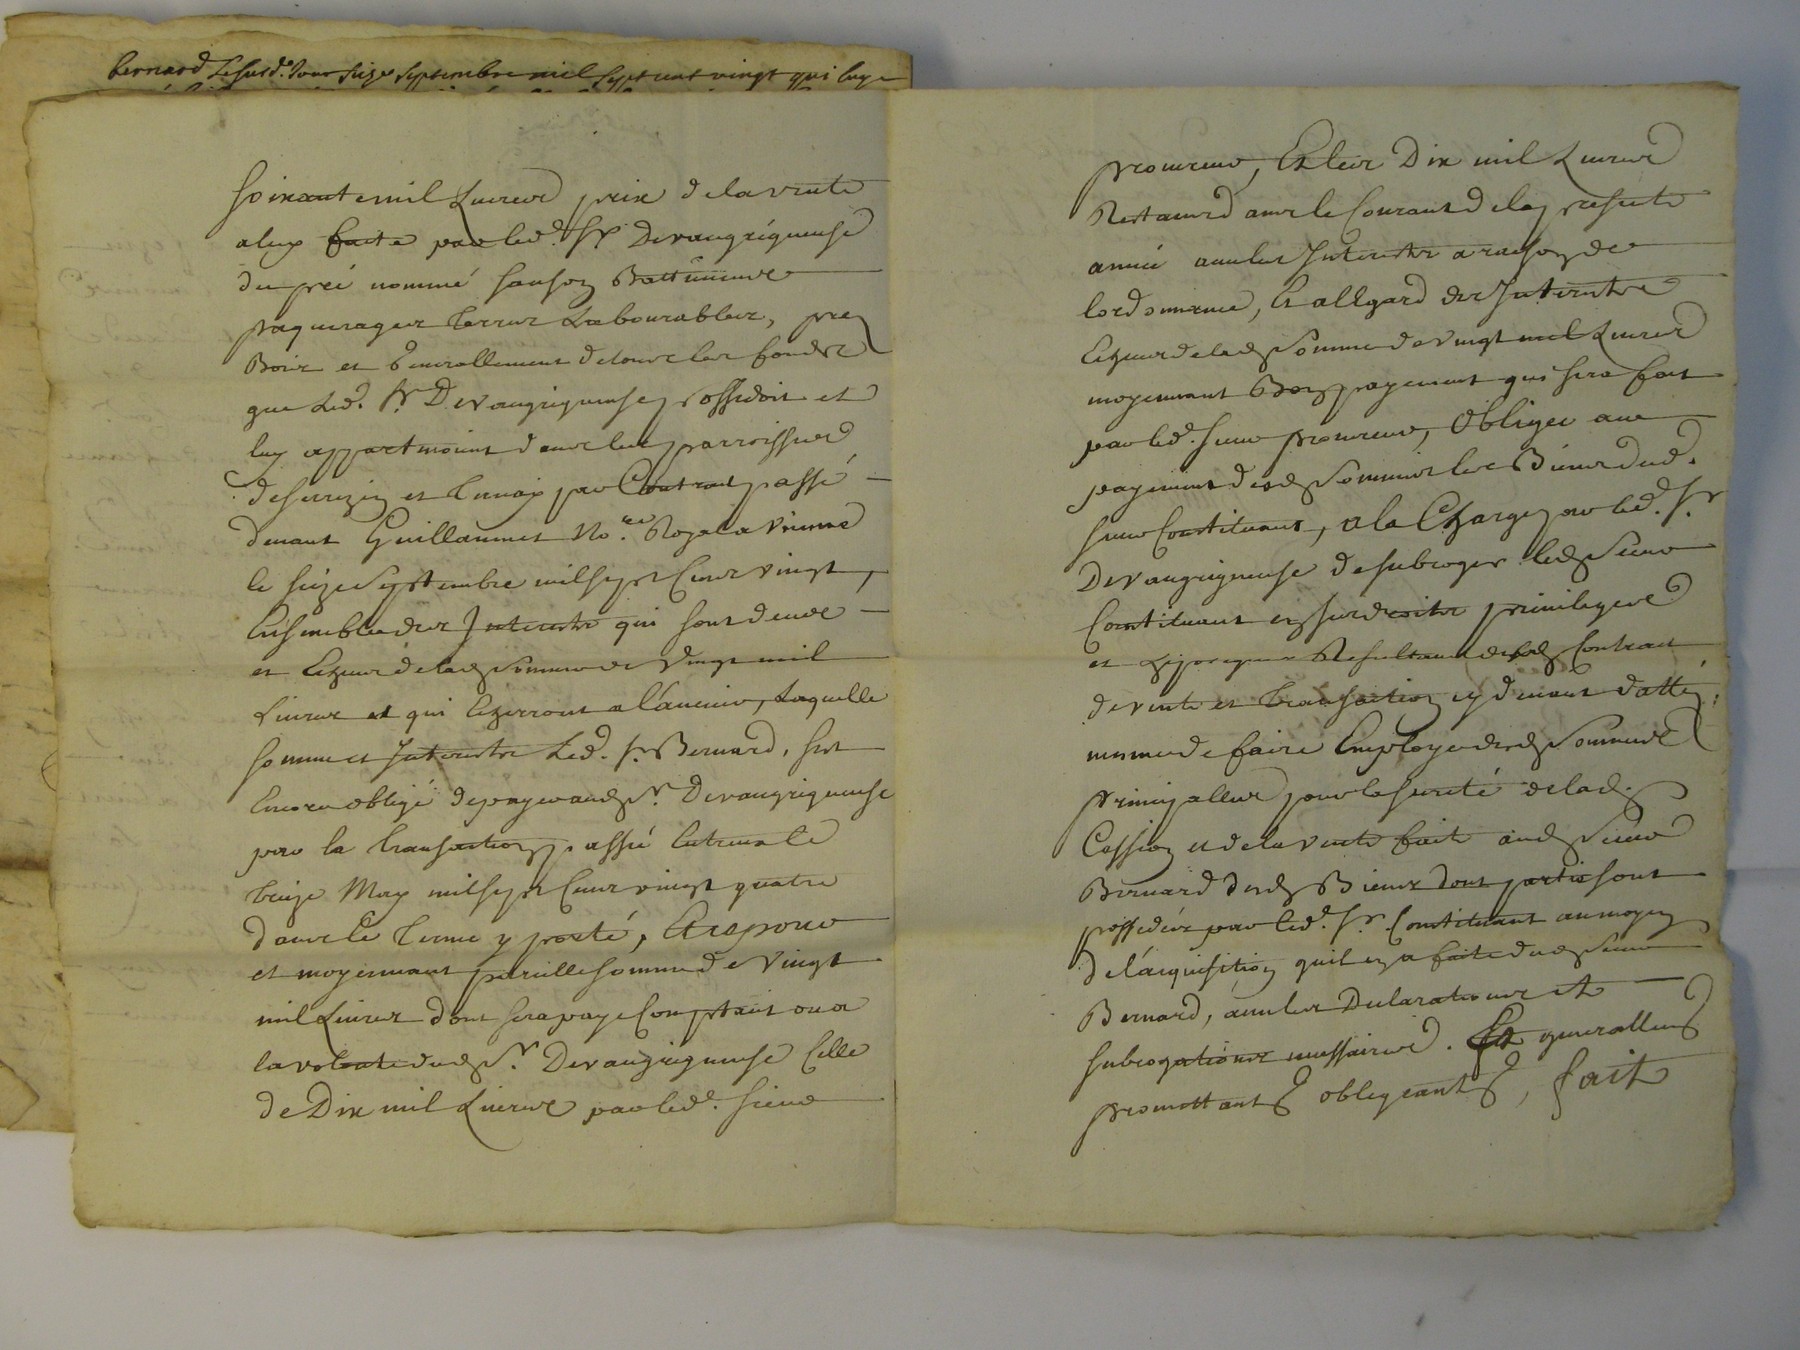 bernard Lesusd. Jour seize septembre mil sept cent vingt qui luy a
soixante mil Livres prix de la vente
a luy faite par led. Sr. Devaugrigneuse
du pré nommé sanson Battiments
paquerages Terres Labourables, prez
Bois et Generallement de tous les fonds
que Led. Sr. Devaugrigneuse possedoit et
luy appartenoint dans les parroisses
de Serrezin et Ternay par Contract passé
devant Guillaumet No.re Royal a Vienne
le seize septembre mil sept Cens vingt,
Ensemble des Interests qui sont deus
et Echeus de lad. somme de Vingt mil
Livres et qui Echerront a l'avenir, Laquelle
somme et Interests Led. Sr. Bernard, s'est
Encore obligé de payer aud. Sr. Devaugrigneuse
par la Transaction passé Entreux le
treize May mil sept Cens vingt quatre
dans le Terme y porté, Et ce pour
et moyennant pareille somme de Vingt
mil Livres dont sera payé Comptant ou a
la volonté dud. Sr. Devaugrigneuse Celle
de Dix mil Livres par led. sieur
procureur, Et les Dix mil Livres
Restants dans le Courant de la presente
année avec les Interests a raison de
lordonnance, Et a l'Egard des Interests
Echeus de lad. somme de Vingt mil Livres
moyennant Bon payement qui sera fait
par led. sieur procureur, Obliger au
payement desd. sommes les Biens dud.
sieur Constituant, a la Charge par led. Sr.
Devaugrigneuse de subroger led. sieur
Constituant en ses droits privileges
et hipoteques Resultans desd. Contract
de vente et Transaction cy devant datté,
mesme de faire Employe desd. sommes
principalles pour la sureté de lad.
Cession et de la vente faite aud. sieur
Bernard desd. Biens dont partie sont
possedés par led. Sr. Constituant au moyen
de l'aquisition quil en a faite dud. sieur
Bernard, avec les Declarations et
subrogations necessaires. Et generallem.
promettant obligeant, fait